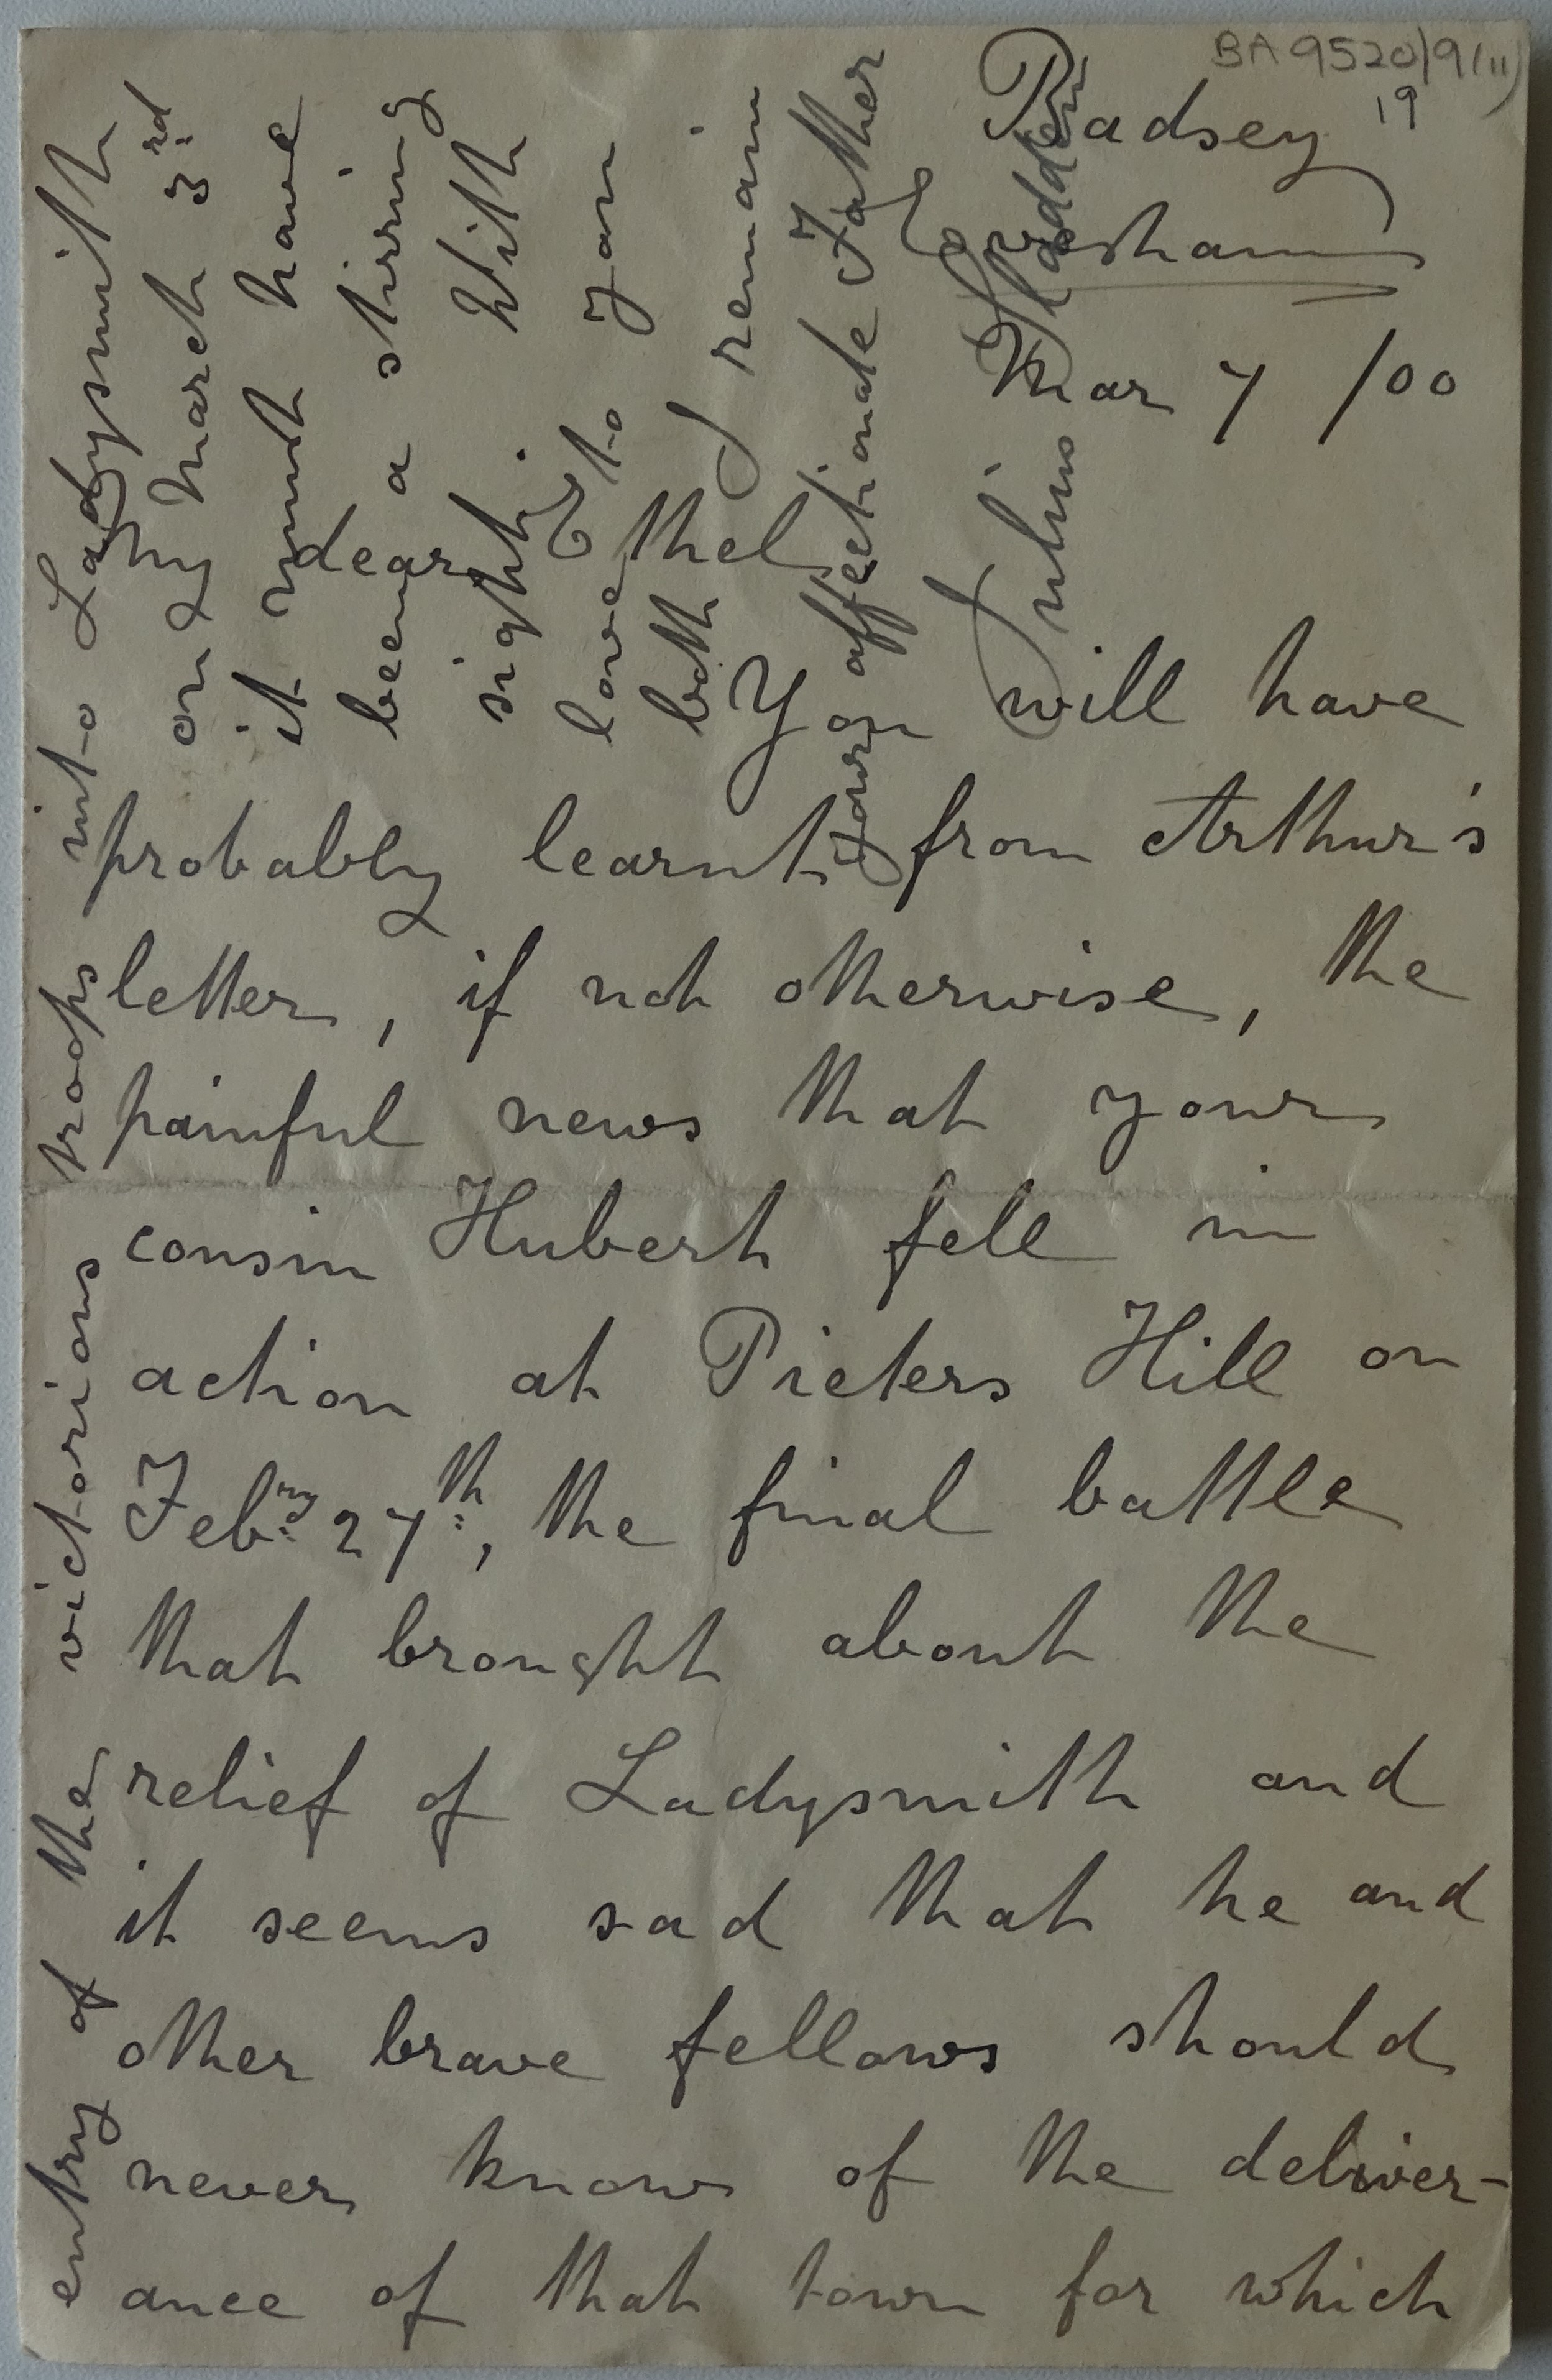 BA 9520/9(ii)
19
Badsey
Evesham
Mar 7 /00
My dear Ethel
You will have
probably learnt from Arthur's
letter, if not otherwise, the
painful news that your
cousin Hubert fell in
action at Pieters Hill on
Feb.ry 27th, the final battle
that brought about the
relief of Ladysmith and
it seems sad that he and
other brave fellows should
never know of the deliver-
ance of that town for which
entry of the victorious troops into Ladysmith
on March 3rd
it must have
been a stirring
sight. With
love to you
both I remain
your affectionate Father
Julius Sladden